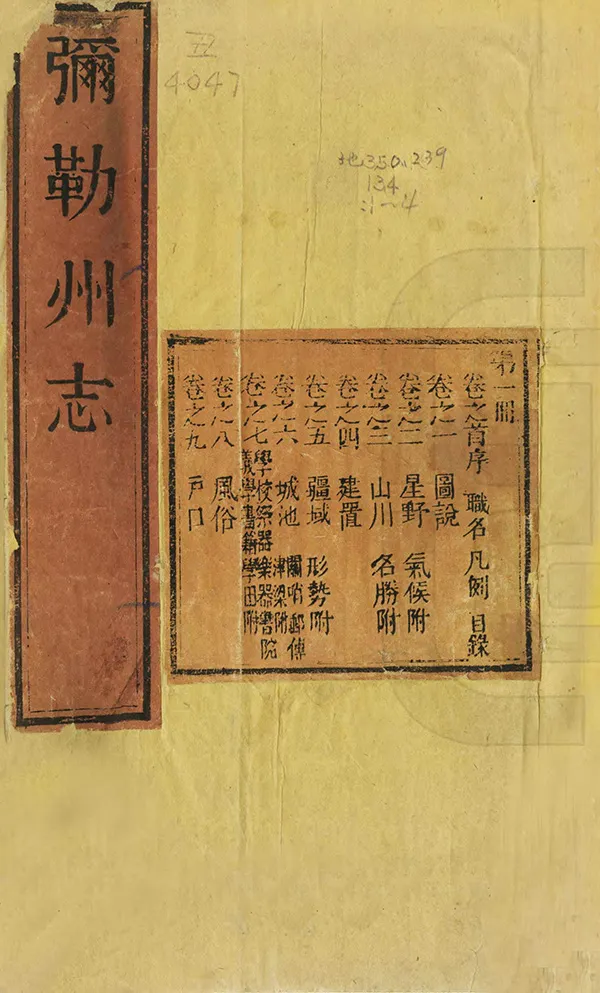 彌勒州志
4047
地350.239
134
:1~4
第一冊
卷之首序 職名 凡例 目錄
卷之一 圖說
卷之二 星野 氣候附
卷之三 山川 名勝附
卷之四 建置
卷之五 疆域 形勢附
卷之六 城池 關哨郵傳津梁附
卷之七 學校祭器樂器書院義學書籍學田附
卷之八 風俗
卷之九 戶口